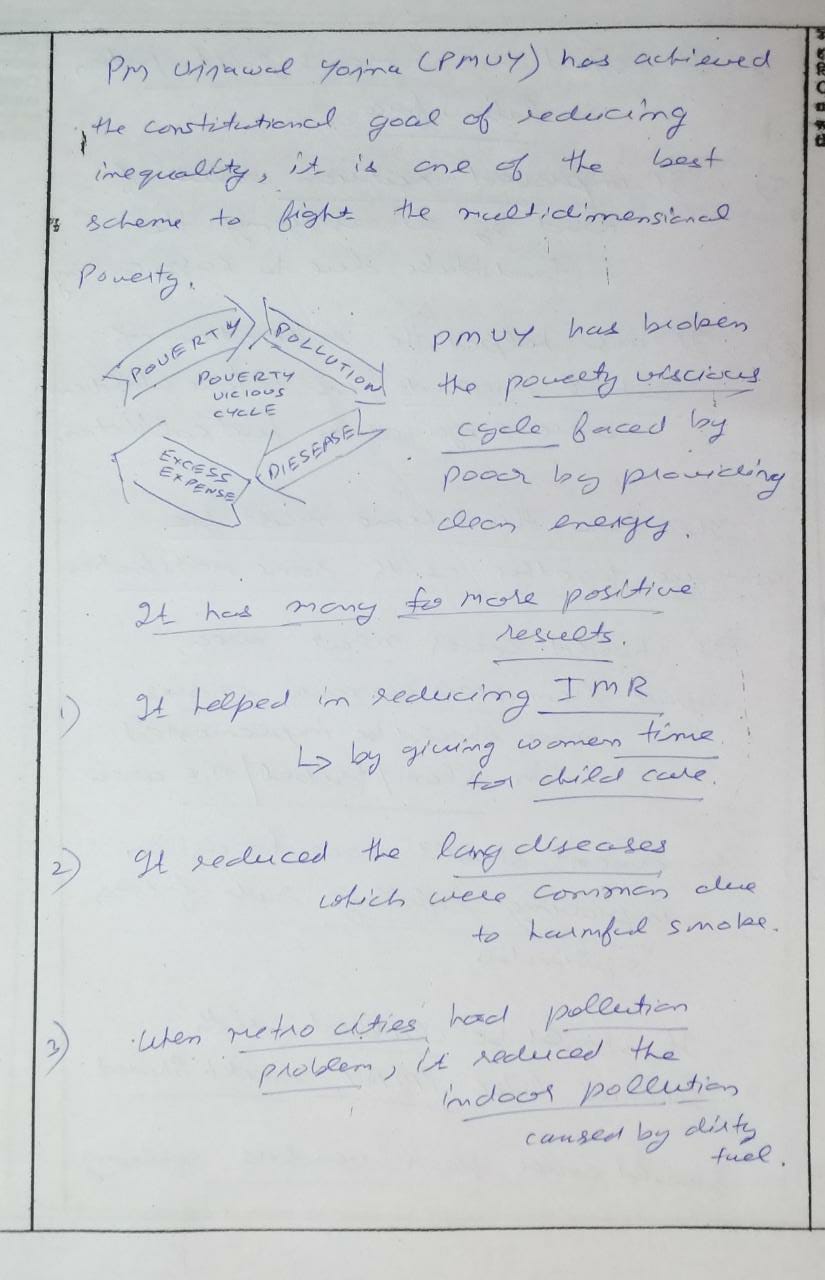 PM Ujjawal Yojna (PMUY) has achieved
the constitutional goal of reducing
inequality, it is one of the best
scheme to fight the multidimensional
Poverty.
POVERTY
POLLUTION
POVERTY
VICIOUS
CYCLE
EXCESS
EXPENSE
DIESEASE
PMUY has broken
the poverty viscious
cycle faced by
poor by providing
clean energy.
It has many more positive
results.
1) It helped in reducing IMR
↳ by giving women time
for child care.
2) It reduced the lung diseases
which were common due
to harmful smoke.
3) When metro cities had pollution
problem, it reduced the
indoor pollution
caused by dirty
fuel.